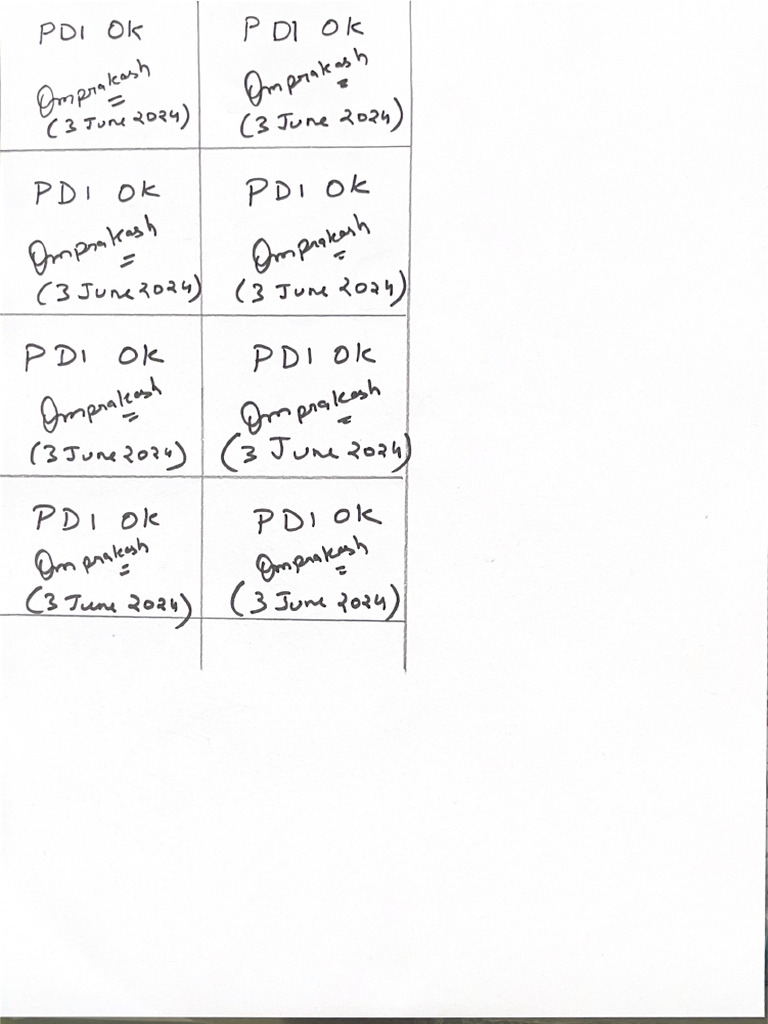 PDI OK
Omprakash
(3 June 2024)
PDI OK
Omprakash
(3 June 2024)
PDI OK
Omprakash
(3 June 2024)
PDI OK
Omprakash
(3 June 2024)
PDI OK
Omprakash
(3 June 2024)
PDI OK
Omprakash
(3 June 2024)
PDI OK
Omprakash
(3 June 2024)
PDI OK
Omprakash
(3 June 2024)